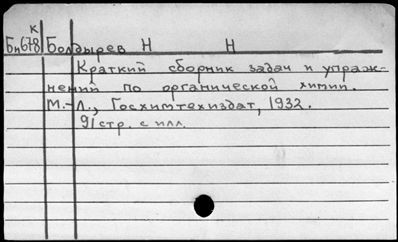 К
Бп678 Болдырев Н Н
Краткий сборник задач и упраж-
нений по органической химии.
М.-Л., Госхимтехиздат, 1932.
91 стр. с илл.